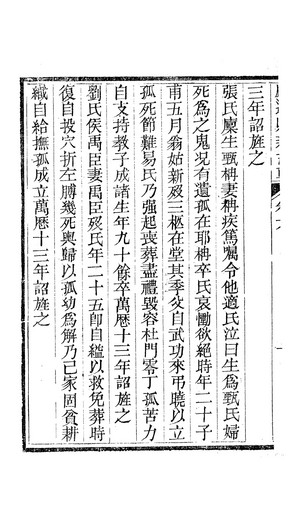 三年詔旌之
張氏廩生甄枏妻枏疾篤囑令他適氏泣曰生為甄氏婦
死為之鬼況有遺孤在耶枏卒氏哀慟欲絕時年二十子
甫五月翁姑新歿三柩在堂其季父自武功來弔曉以立
孤死節難易氏乃強起喪葬盡禮毀容杜門零丁孤苦力
自支持教子成諸生年九十餘卒萬曆十三年詔旌之
劉氏侯禹臣妻禹臣歿氏年二十五卽自縊以救免葬時
復自投穴折左膊幾死輿歸以孤幼為解乃已家固貧耕
織自給撫孤成立萬曆十三年詔旌之